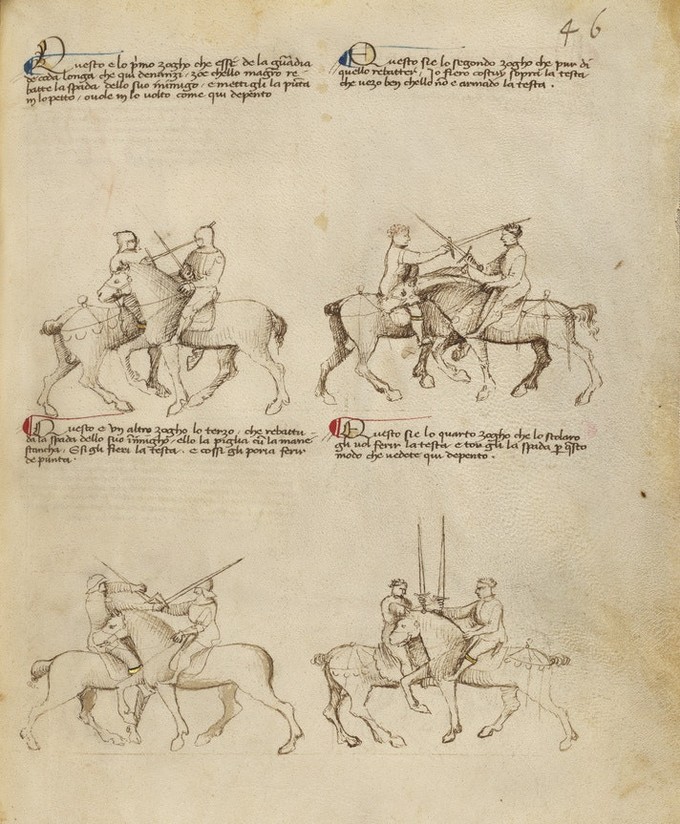 46
Questo e lo pͫmo zogho che esse de la guardia
de coda longa che qui denanzi, zoe chello magro re-
batte la spada dello suo inimigo, e metti gli la punta
in lo petto, o vole in lo volto come qui depento
Questo sie lo segondo zogho che pur di
quello rebatter, Io fiero costuy sopra la testa
che vezo ben chello nō e armado la testa.
Questo e un altro zogho lo terzo, che rebattu-
da la spada dello suo inimigho, ello la piglia cū la mane
stancha. E si gli fieri la testa. e cossi gli poria ferir
de punta.
Questo sie lo quarto zogho che lo scolaro
gli vol ferir la testa e tor gli la spada p q̄sto
modo che vedete qui depento.